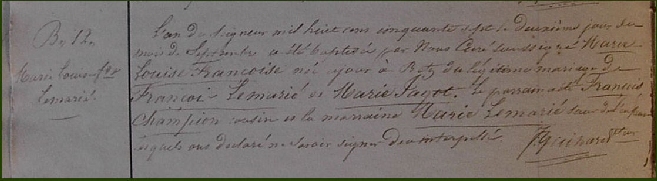 B. 12.
Marie Louise f.se
Lemarié.
L'an du Seigneur mil huit cent cinquante sept le deuxième jour du
mois de Septembre a été baptisée par Nous Curé soussigné Marie
Louise Françoise née ce jour à du légitime mariage de
François Lemarié et Marie Pagot. Le parrain a été François
Champion cousin et la marraine Marie Lemarié sœur de l'enfant
lesquels ont déclaré ne savoir signer de ce interpellé